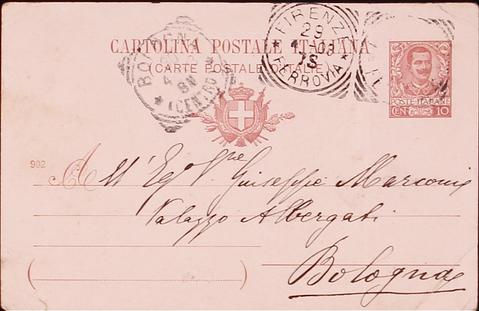 CARTOLINA POSTALE ITALIANA
(CARTE POSTALE D'ITALIE)
FIRENZE
29
4-03
7S
* FERROVIA *
BOLOGNA
* (CENTRO) *
POSTE ITALIANE
CEN 10
902
All' Egº Sigre Giuseppe Marconi
Palazzo Albergati
Bologna